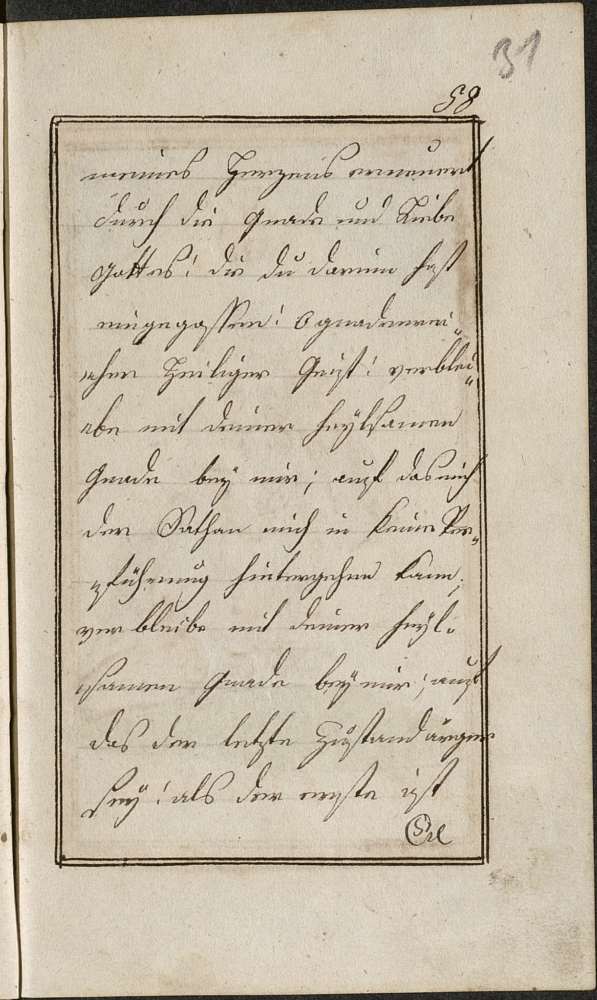 31
58
meines Herzens erneuert
durch die Gnade und Liebe
Gottes! die du darein hast
eingegossen! O gnadenrei„
cher Heiliger Geist! verblei„
be mit deiner heylsamen
Gnade bey mir; auf das nicht
der Sathan mich in keine Ver„
führung hintergehen kann;
verbleibe mit deiner heyl„
samen Gnade bey mir; auf
das der letzte Zustand ärger
sey! als der erste ist